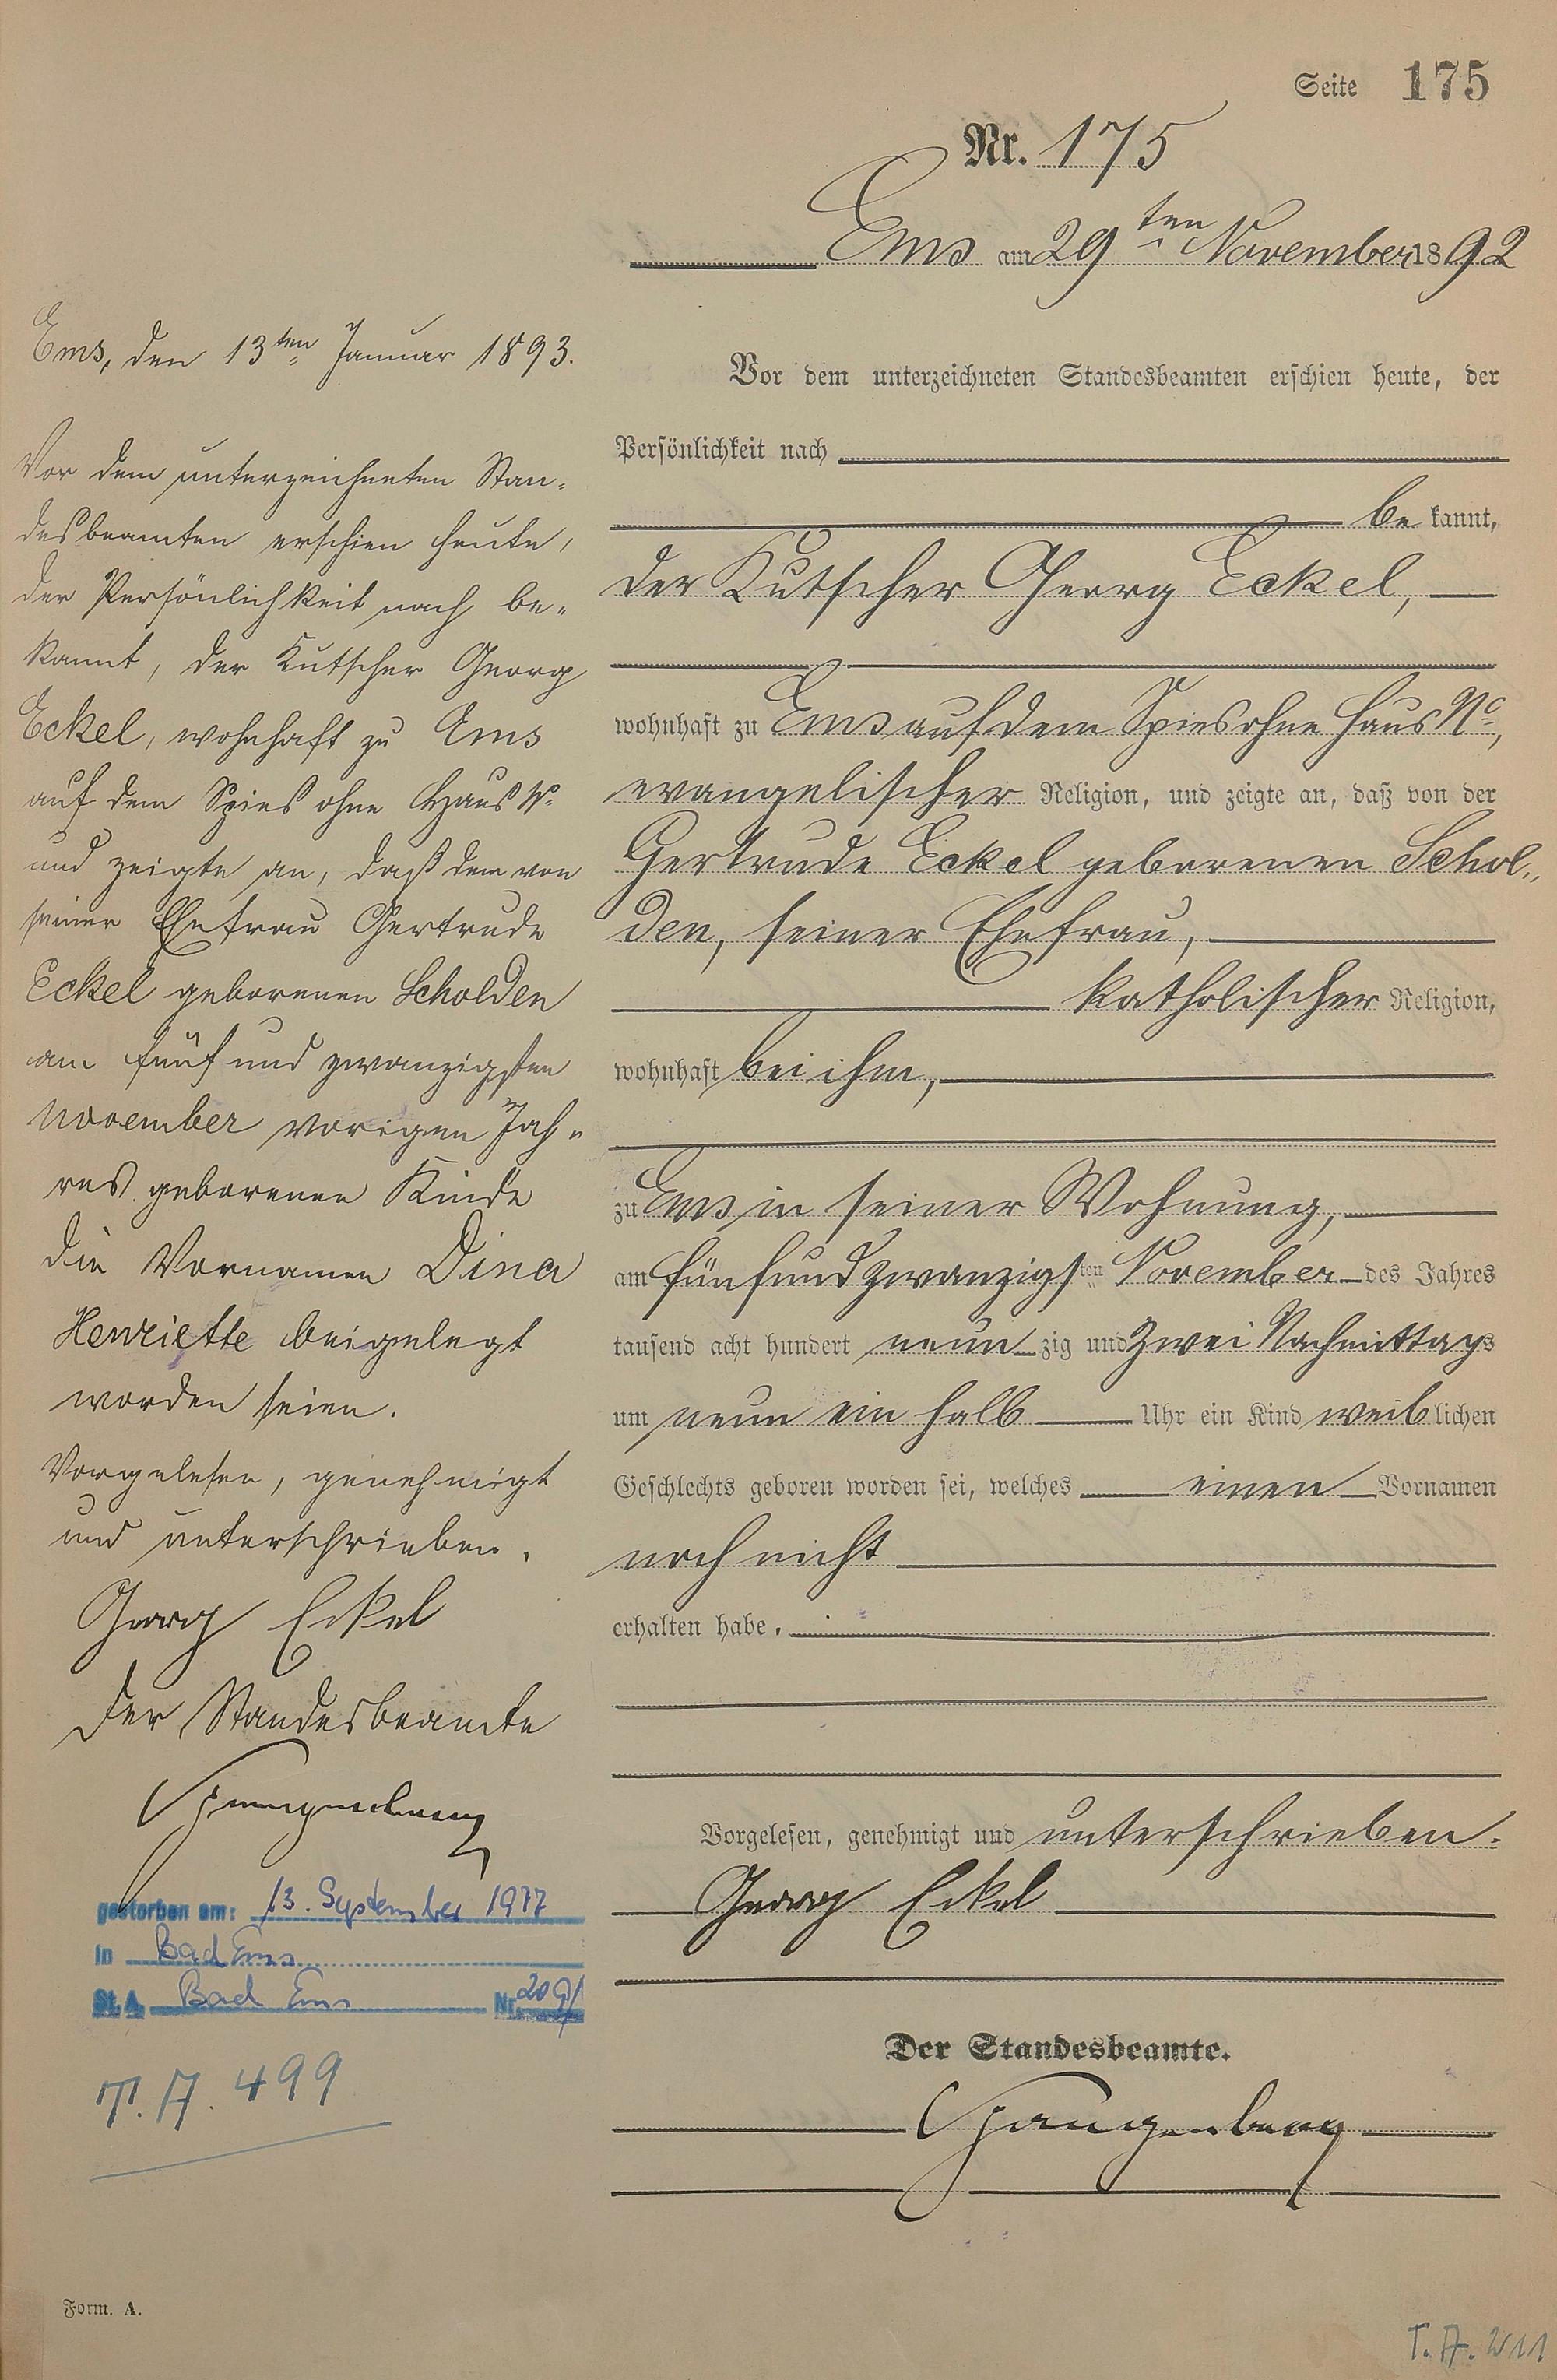 Seite 175
Nr. 175
Ems am 29ten November 1892
Vor dem unterzeichneten Standesbeamten erschien heute, der
Persönlichkeit nach
be kannt,
der Kutscher Georg Eckel,
wohnhaft zu Ems auf dem Spies ohne Haus No,
evangelischer Religion, und zeigte an, daß von der
Gertrude Eckel geborenen Schol„
den, seiner Ehefrau,
katholischer Religion,
wohnhaft bei ihm,
zu Ems in seiner Wohnung,
am fünfundzwanzigsten November des Jahres
tausend acht hundert neunzig und zwei Nachmittags
um neun ein halb Uhr ein Kind weiblichen
Geschlechts geboren worden sei, welches einen Vornamen
noch nicht
erhalten habe.
Vorgelesen, genehmigt und unterschrieben.
Georg Eckel
Der Standesbeamte.
Spangenberg
Ems, den 13ten Januar 1893.
Vor dem unterzeichneten Stan„
desbeamten erschien heute,
der Persönlichkeit nach be„
kannt, der Kutscher Georg
Eckel, wohnhaft zu Ems
auf dem Spies ohne Haus No
und zeigte an, daß dem von
seiner Ehefrau Gertrude
Eckel geborenen Scholden
am fünf und zwanzigsten
November vorigen Jah„
res geborenen Kinde
die Vornamen Dina
Henriette beigelegt
worden seien.
Vorgelesen, genehmigt
und unterschrieben.
Georg Eckel
Der Standesbeamte
Spangenberg
gestorben am: 13. September 1977
in Bad Ems
St. A. Bad Ems Nr. 209/
T. A. 499
Form. A.
T. A. 211